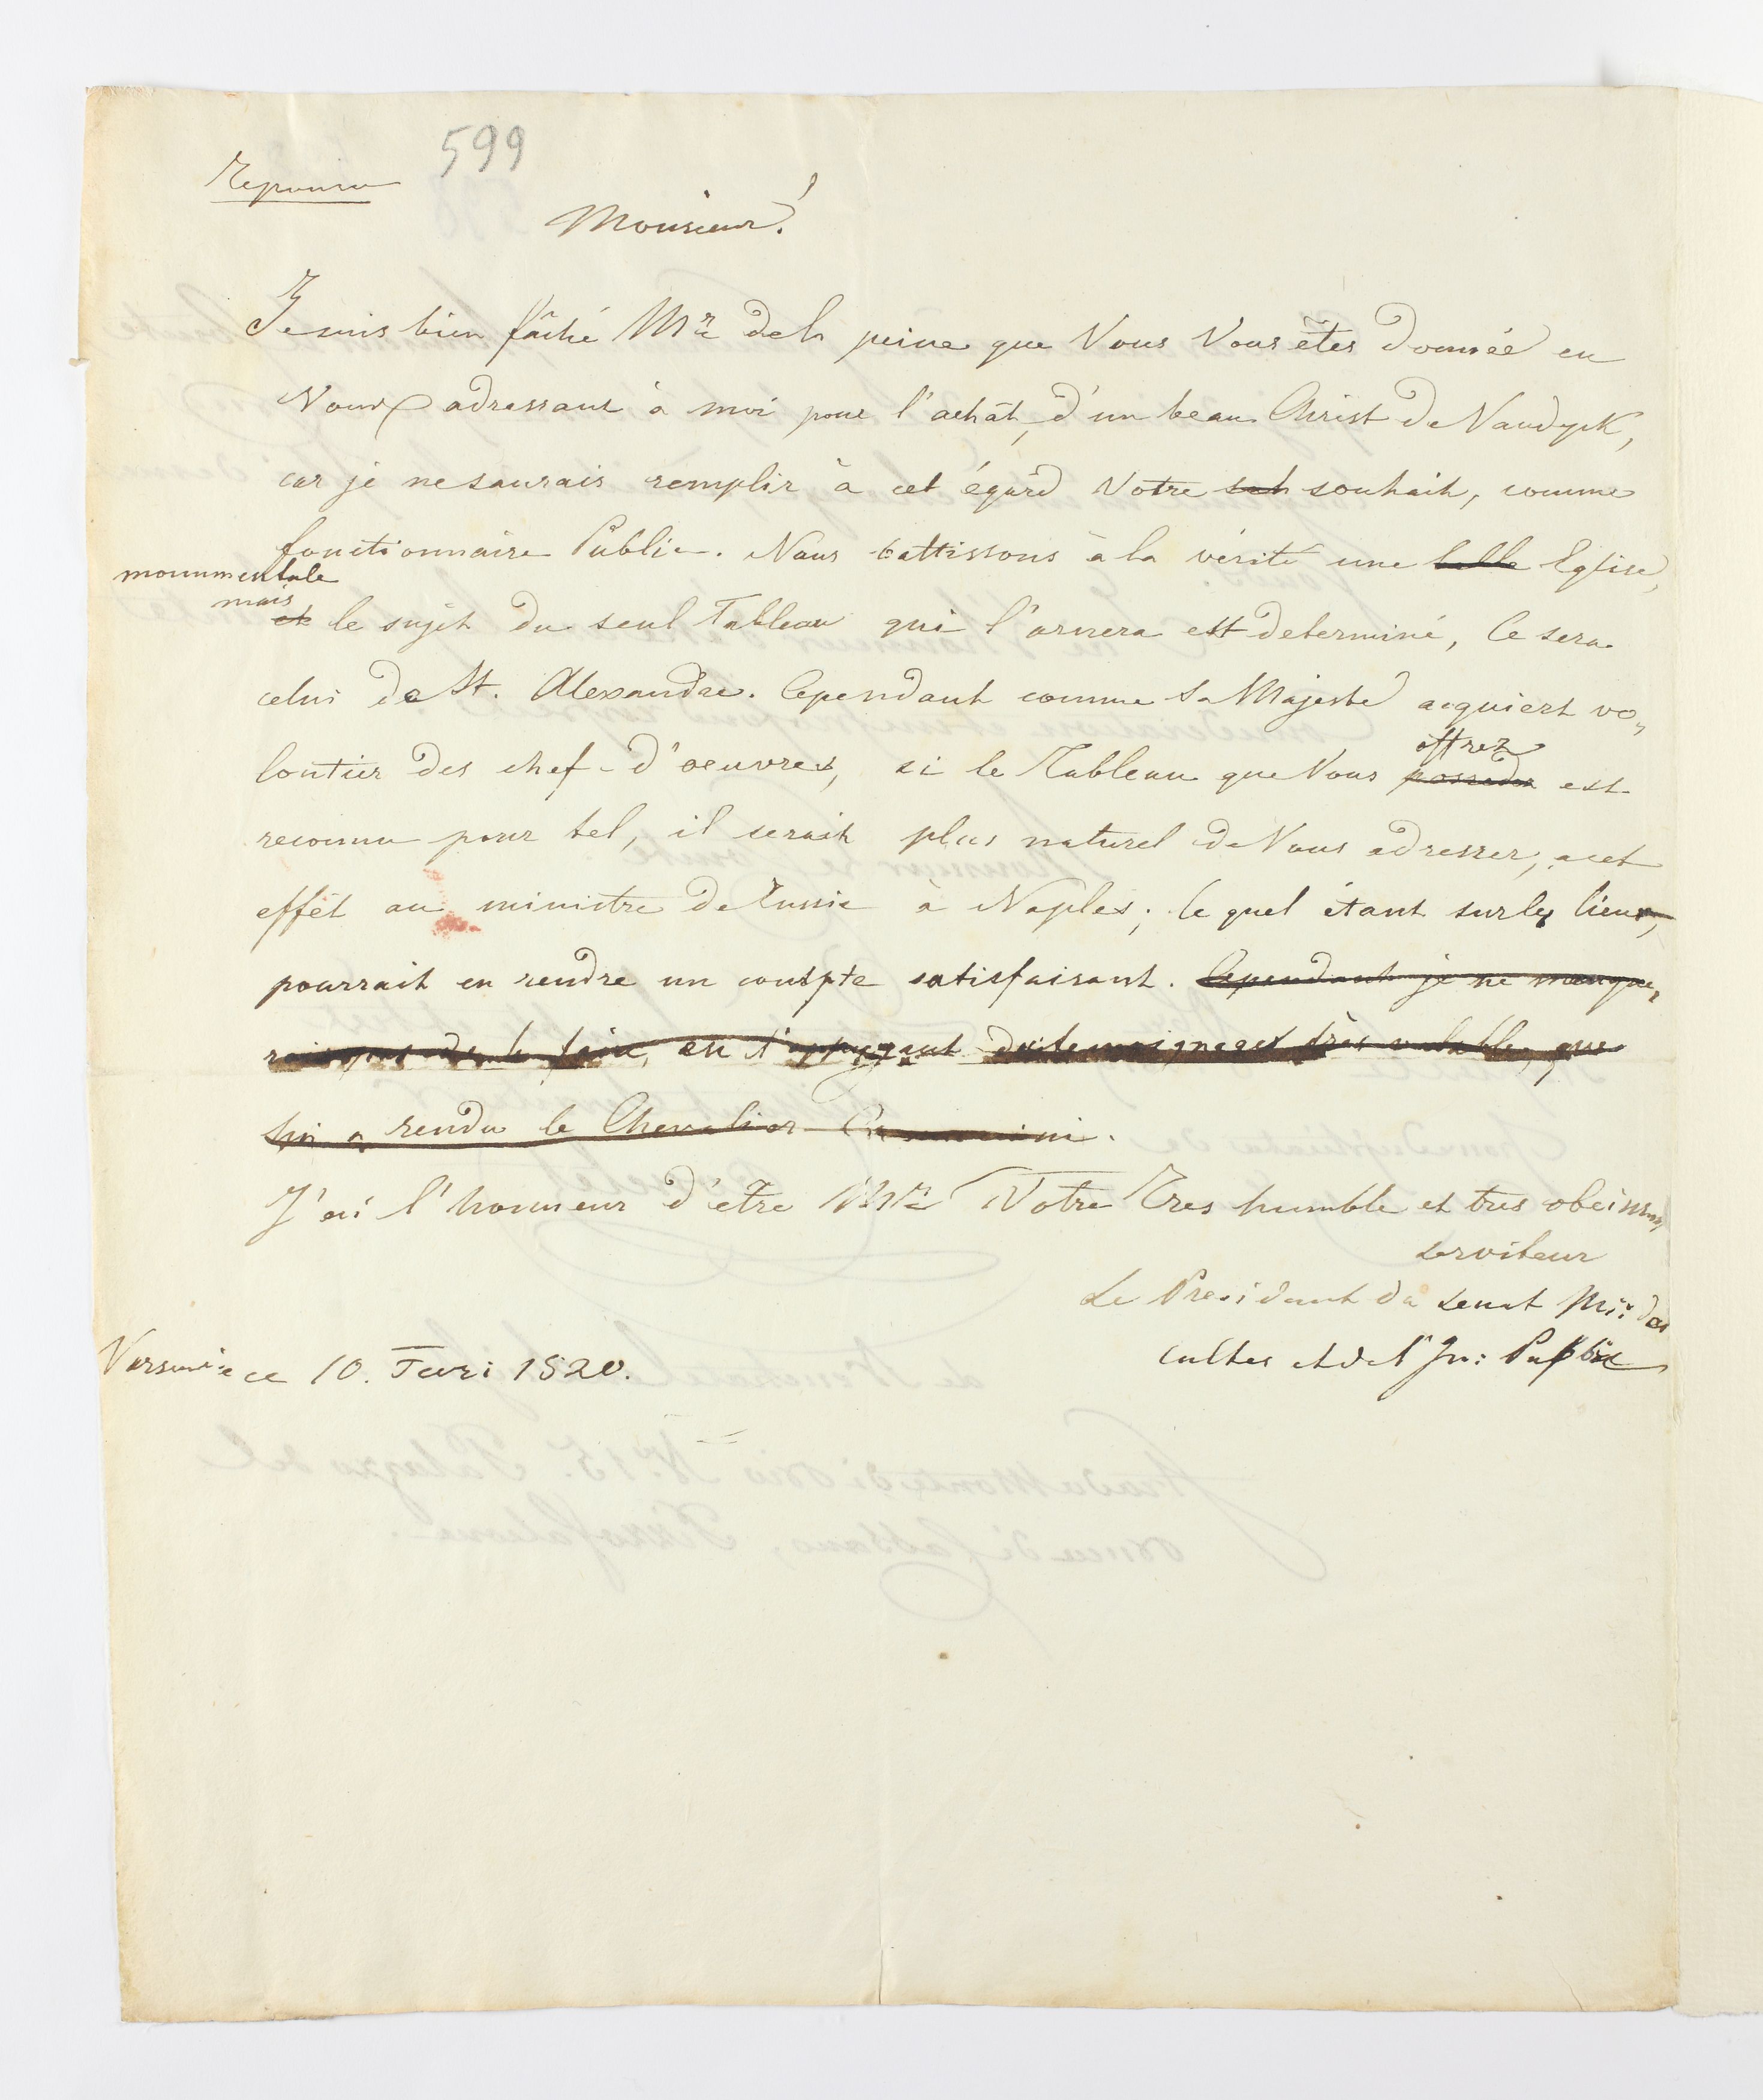 599
Reponse
Monsieur!
Je suis bien fâché Mr dela peine que Vous Vous êtes donnée en
Vous adressant à moi pour l'achât, d'un beau Christ de Vandyck,
car je ne saurais remplir à cet égard Votre souhait, comme
fonctionnaire Public. Nous battissons à la vérité une belle Eglise,
monumentale
mais
et le sujet du seul Tableau qui l'ornera est determiné, Ce sera
celui de St. Alexandre. Cependant comme Sa Majesté acquiert vo„
offrez
lontier des chef-d'oeuvres, si le Tableau que Vous possedez est
reconnu pour tel, il serait plus naturel de Vous adresser, acet
effèt au ministre de Russie à Naples; le quel étant surles lieux,
pourrait en rendre un compte satisfaisant. Cependant je ne manque„
rais pas de le faire, en s'appuyant temoignages très valable, que
lui a rendu le Chevalier Camuccini.
J'ai l'honneur d'etre Mr Votre Tres humble et tres obeissant
serviteur
Le President du Senat Mi: des
cultes et de l'In: Publice
Varsovie ce 10. 1820.